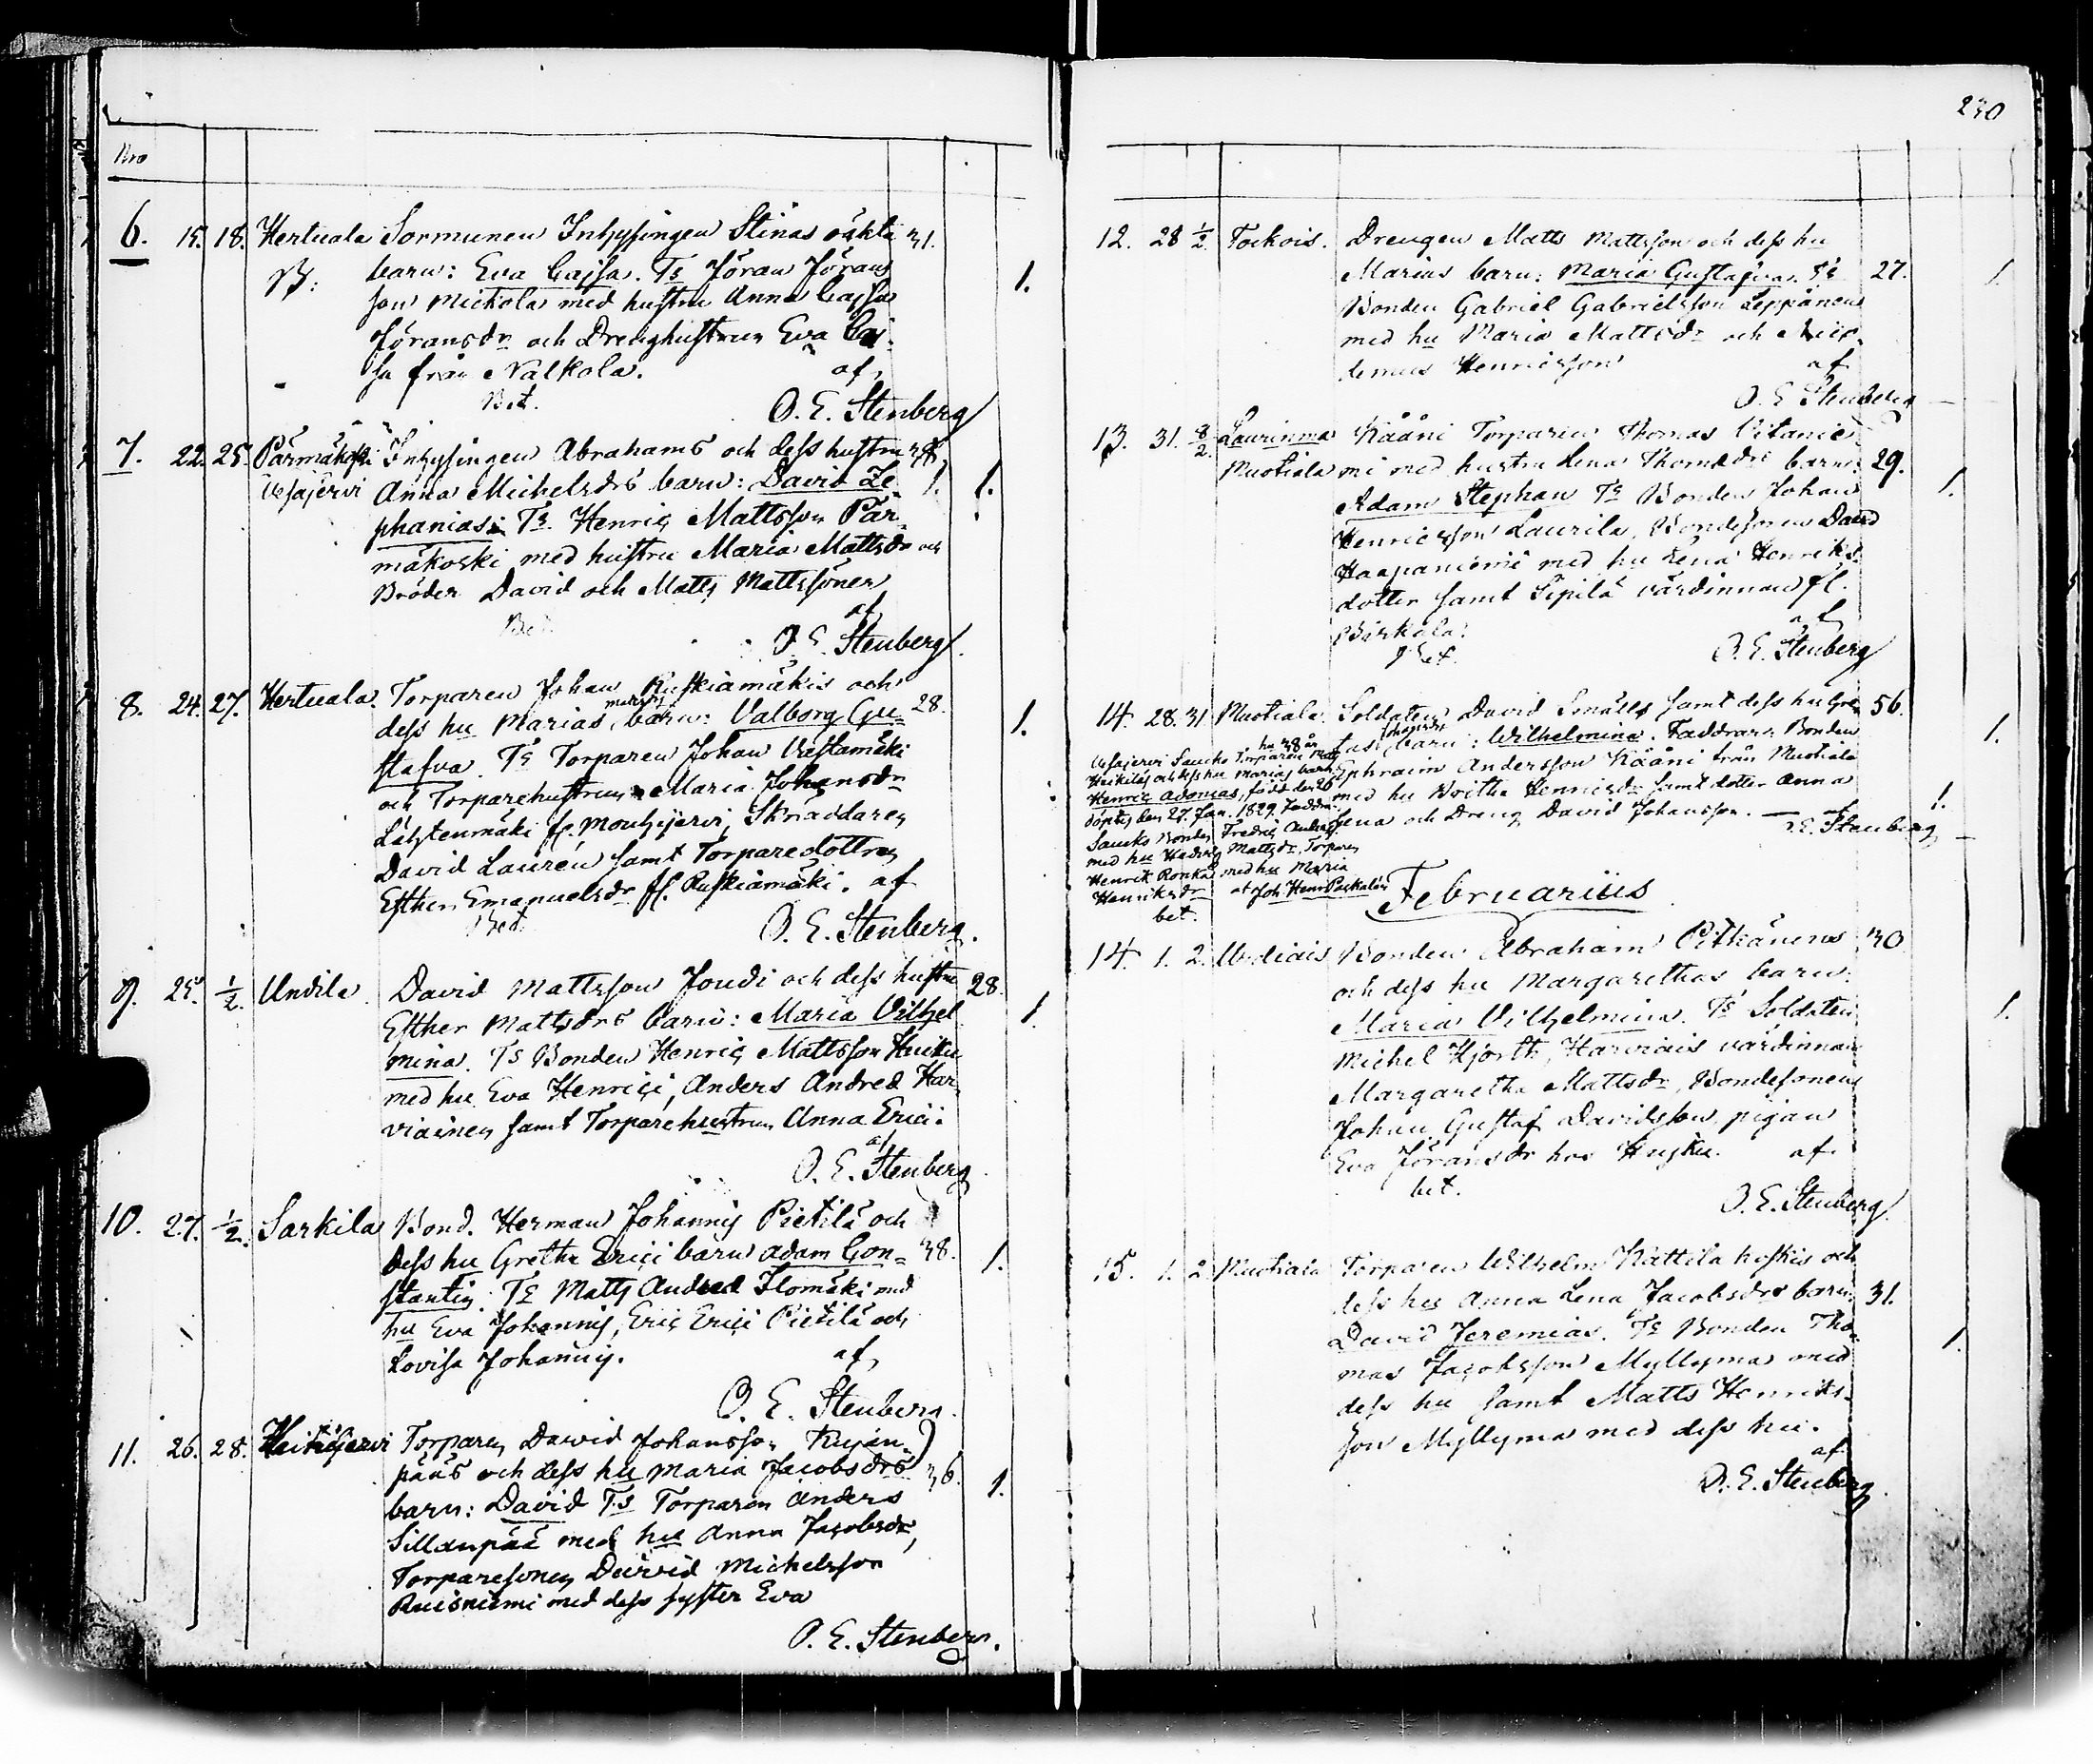 230
Nro
6. 15. 18. Hertuala Sormunen Inhysingen Stinas oäkta 31.
barn: Eva Cajsa. Ts Jöran Jörans
son Mickola med hustru Anna Cajsa 1.
Jöransdr och Dreng hustrun Eva Caj
sa från Nalkola. af
Bet. O. E. Stenberg
7. 22. 25. Pärmäkoski Inhysingen Abrahams och dess hustru 38.
Wesajervi Anna Michelsdrs barn: David Ze 1. 1.
phanias: Ts. Henric Mattsson Pär
mäkoski med hustru Maria Mattsdr och
Bröder David och Matts Mattssöner
af
Bet. O. E. Stenberg.
8. 24. 27. Hertuala. Torparen Johan Ruskiamäkis och
dess hu Marias Mattsdrs barn: Valborg Gu= 28.
stafva. Ts Torparen Johan Vastamäki 1.
och Torparehustrun Maria Johansdr
Lähtenmäki fr. Mouhijervi, Skräddaren
David Lauren samt Torparedottren
Esther Emanuelsdr fr. Ruskiamäki. af
Bet. O. E. Stenberg.
9. 25. 1/2. Undila. David Mattsson Joudi och dess hustru 28.
Esther Mattsdrs barn: Maria Vilhel 1.
mina. Ts Bonden Henric Mattsson Heiku
med hu Eva Henrici, Anders Andred Har
viainen samt Torparehustrun Anna Erici.
af
O. E. Stenberg
10. 27. 1/2. Sarkila Bond. Herman Johannis Pietilä och
dess hu Gretha Erici barn Adam Con= 38.
stantin. Ts Matts Andred Ilomäki med 1.
hu Eva Johannis, Eric Erici Pietilä och
Lovisa Johannis. af
O. E. Stenberg.
11. 26. 28. Heinijervi Torparen David Johansson Kujan
pääs och dess hu Maria Jacobsdrs 36.
barn: David Ts Torparen Anders 1.
Sillanpää med hu Anna Jacobsdr,
Torparesonen David Michelsson
Ruisniemi med dess syster Eva
O. E. Stenberg.
12. 28 1/2. Tockois. Drengen Matts Mattsson och dess hu
Marias barn: Maria Gustafva. Ts 27. 1.
Bonden Gabriel Gabrielsson Leppänen
med hu Maria Mattsdr och Nico
demus Henricsson af
O. E. Stenberg
13. 31. 8/2. Laurinma Kääni Torparen Thomas Vitanie
Muotiala mi med hustru Lena Thomædrs barn 29.
Adam Stephan Ts Bonden Johan 1.
Henricsson Laurila, Bondesonen David
Haapaniemi med hu Lena Henriks
dotter samt Sipilä värdinnan fr.
Birkala: af
Bet. O. E. Stenberg
14. 28. 31 Muotiala. Soldaten David Snälls samt dess hu Gre 56.
tas Johansdrs barn: Wilhelmina. Faddrar: Bonden 1.
Ephraim Andersson Kääni från Muotiala
med hu Britha Henricsdr samt dotter Anna
Lena och Dreng David Johansson. af O. E. Stenberg
hu 38 år
Wesajervi Saucko Torparen Matts
Heikiläs och dess hu Marias barn
Henric Adonias, född den 26 1.
döptes den 27. Jan. 1829. Faddr.
Saucko Bonden Fredric Anders
med hu Hedvig Mattsdr, Torparen
Henrik Ronka med hu Maria
Henriksdr af Joh. Henr. Paskalius
bet.
Februarius
14. 1. 2. Undiais Bonden Abraham Pitkänens 30.
och dess hu Margarethas barn:
Maria Vilhelmina. Ts Soldaten 1.
Michel Hjorth, Harviais värdinnan
Margaretha Mattsdr, Bondesonen
Johan Gustaf Davidsson, pigan
Eva Jöransdr hos Heiku. af.
bet. O. E. Stenberg.
15. 1. 2 Muotiala Torparen Wilhelm Kattila hoskis och
dess hu Anna Lena Jacobsdrs barn 31.
David Jeremias. Ts Bonden Tho 1.
mas Jacobsson Myllyma med
dess hu samt Matts Henriks
son Myllyma med dess hu.
af
O. E. Stenberg.